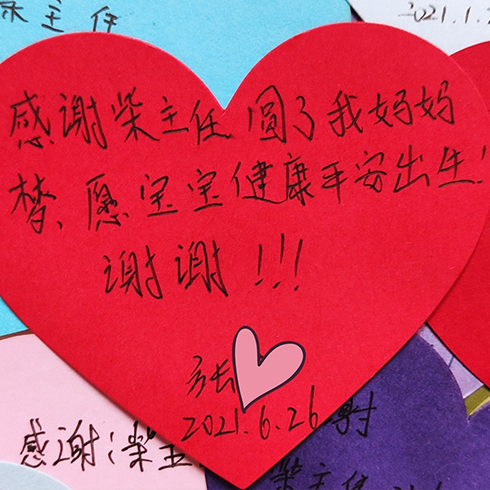 主任
2021.1.2
感谢柴主任圆了我妈妈
梦、愿宝宝健康平安出生!
谢谢!!!
张
2021.6.26
感谢:柴主
谢
柴主任